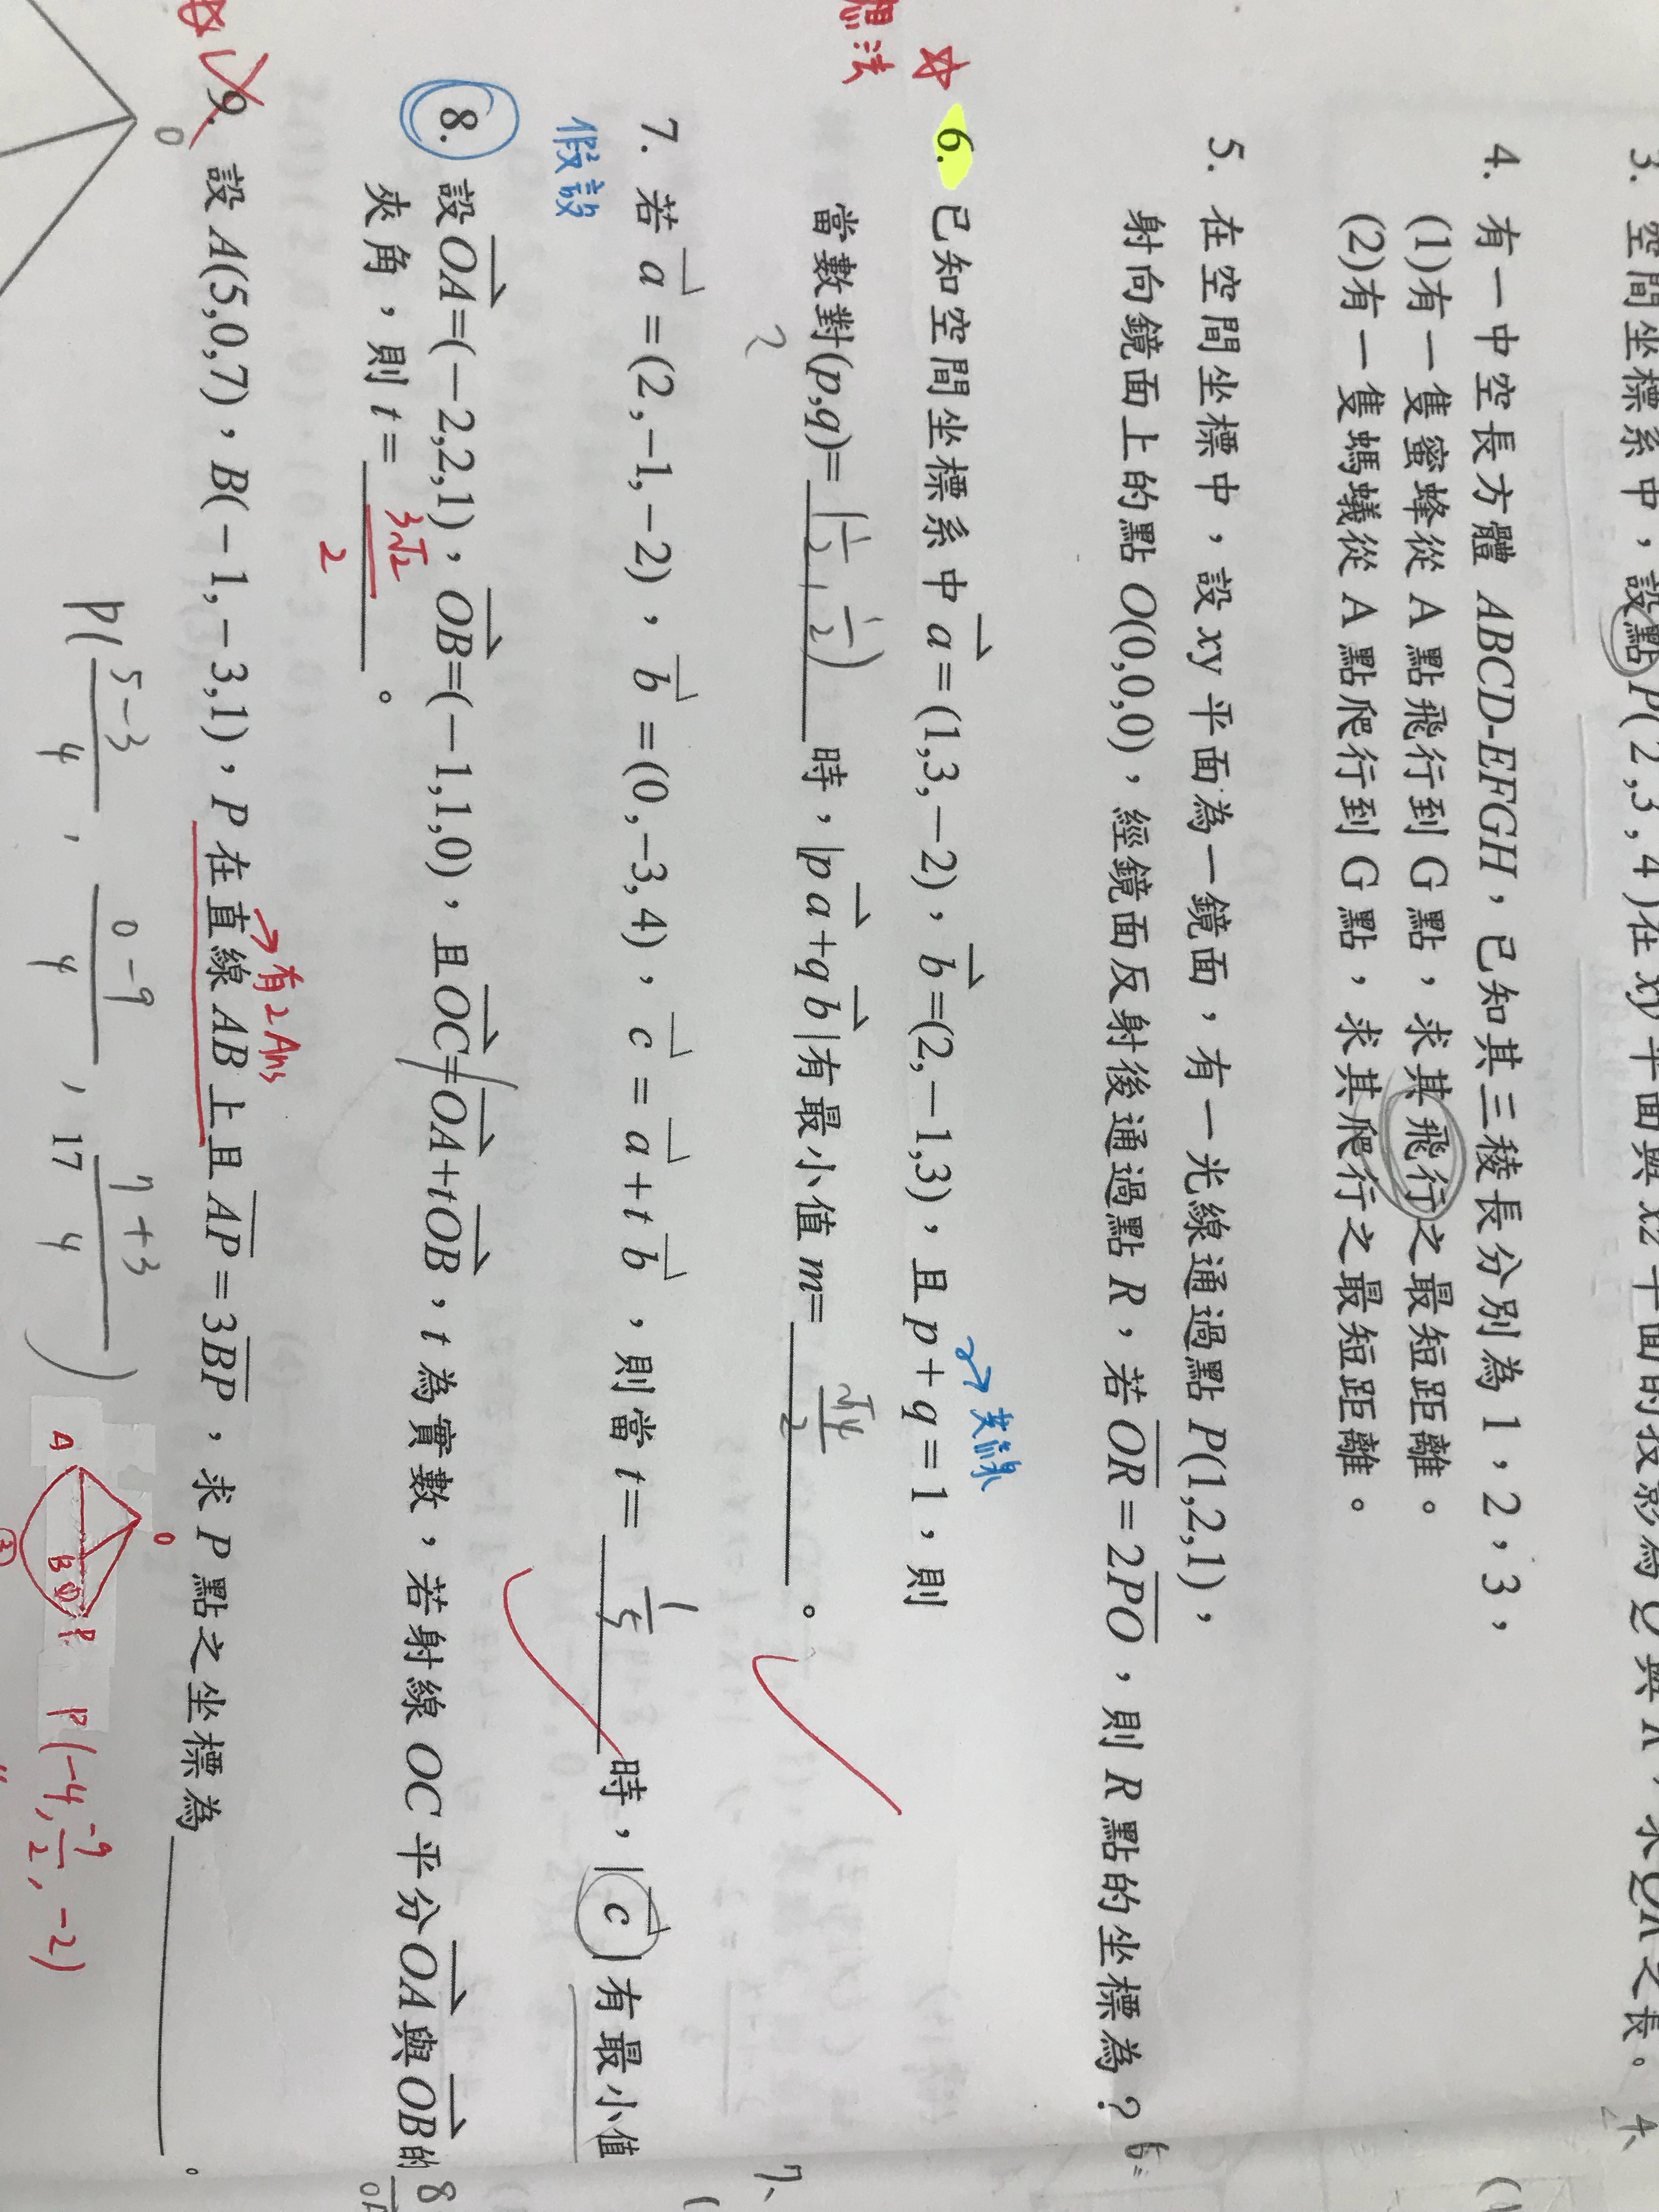 3. 空間坐標系中，設點P(2,3,4)在xy平面與xz平面的投影為Q與R，求QR之長。
4. 有一中空長方體 ABCD-EFGH，已知其三稜長分別為1，2，3，
(1)有一隻蜜蜂從 A 點飛行到 G 點，求其飛行之最短距離。
(2)有一隻螞蟻從 A 點爬行到 G 點，求其爬行之最短距離。
5. 在空間坐標中，設 xy 平面為一鏡面，有一光線通過點 P(1,2,1)，
射向鏡面上的點 O(0,0,0)，經鏡面反射後通過點 R，若 OR = 2PO，則 R 點的坐標為？
☆
6. 已知空間坐標系中 a⃗ = (1,3,−2)，b⃗ =(2,−1,3)，且 p + q = 1，則
→共線
想法
當數對(p,q)= (1/2, 1/2) 時，|p a⃗ + q b⃗ |有最小值 m= √14/2 。
7. 若 a⃗ = (2,−1,−2)，b⃗ = (0,−3,4)，c⃗ = a⃗ + t b⃗ ，則當 t = 1/5 時，| c⃗ |有最小值
假設
8. 設 OA⃗ =(−2,2,1)，OB⃗ =(−1,1,0)，且 OC⃗ = OA⃗ + t OB⃗，t 為實數，若射線 OC 平分 OA⃗ 與 OB⃗ 的
夾角，則 t = 3√2/2 。
→有2Ans
9. 設 A(5,0,7)，B(−1,−3,1)，P 在直線 AB 上且 AP = 3BP，求 P 點之坐標為 。
P( 5−3/4 , 0−9/4 , 7+3/4 )
17
O
A B P
O
P(−4, −9/2, −2)